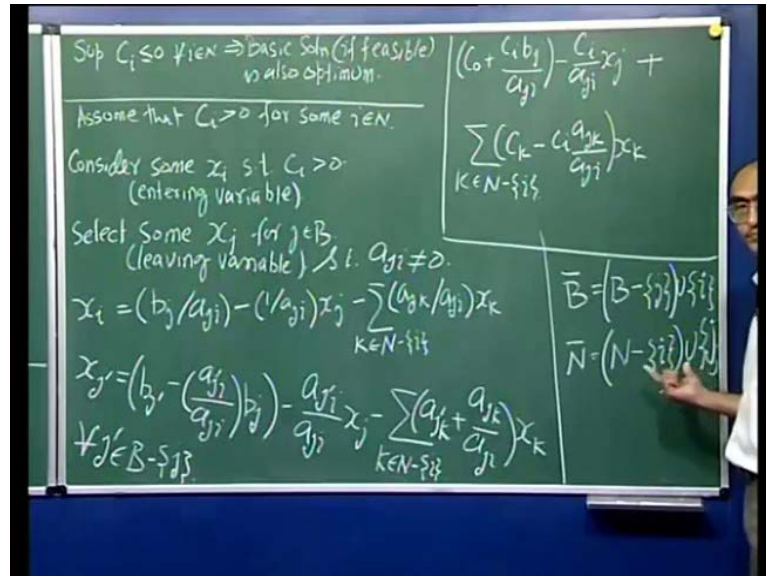 Sup Cᵢ ≤ 0 ∀ i∈N ⇒ basic Soln (if feasible)
is also optimum.
Assume that Cᵢ > 0 for some i∈N.
Consider some xᵢ s.t Cᵢ > 0.
(entering variable)
Select some xⱼ for j∈B
(leaving variable) s.t. aⱼᵢ ≠ 0.
xᵢ = (bⱼ/aⱼᵢ) - (1/aⱼᵢ)xⱼ - Σ_{K∈N-{i}} (aⱼₖ/aⱼᵢ)xₖ
xⱼ′ = (bⱼ′ - (aⱼ′ᵢ/aⱼᵢ)bⱼ) - (aⱼ′ᵢ/aⱼᵢ)xⱼ - Σ_{K∈N-{i}} (aⱼ′ₖ + aⱼₖ/aⱼᵢ)xₖ
∀ j′∈B-{j}
(C₀ + Cᵢbⱼ/aⱼᵢ) - (Cᵢ/aⱼᵢ)xⱼ +
Σ_{K∈N-{i}} (Cₖ - Cᵢ aⱼₖ/aⱼᵢ)xₖ
B̄ = (B-{j})∪{i}
N̄ = (N-{i})∪{j}